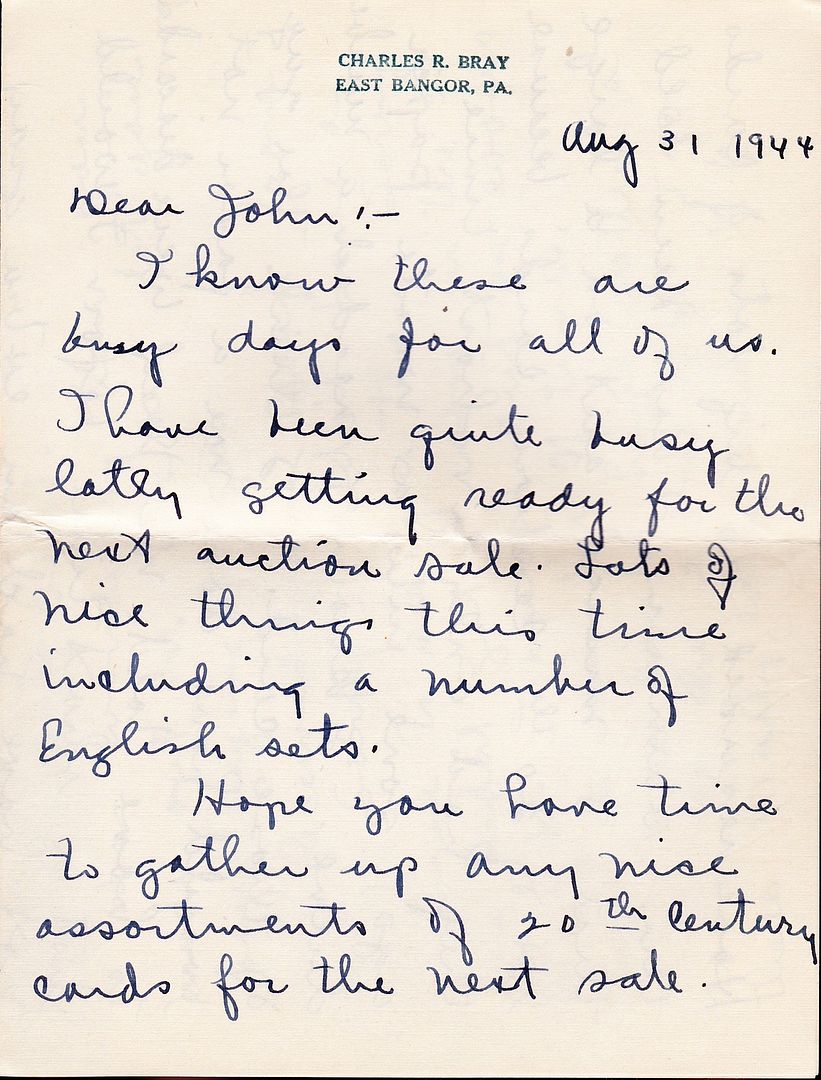 CHARLES R. BRAY
EAST BANGOR, PA.
Aug 31 1944
Dear John!-
I know these are
busy days for all of us.
I have been quite busy
latly getting ready for the
next auction sale. Lots of
nice things this time
including a number of
English sets.
Hope you have time
to gather up any nice
assortments of 20th Century
cards for the next sale.